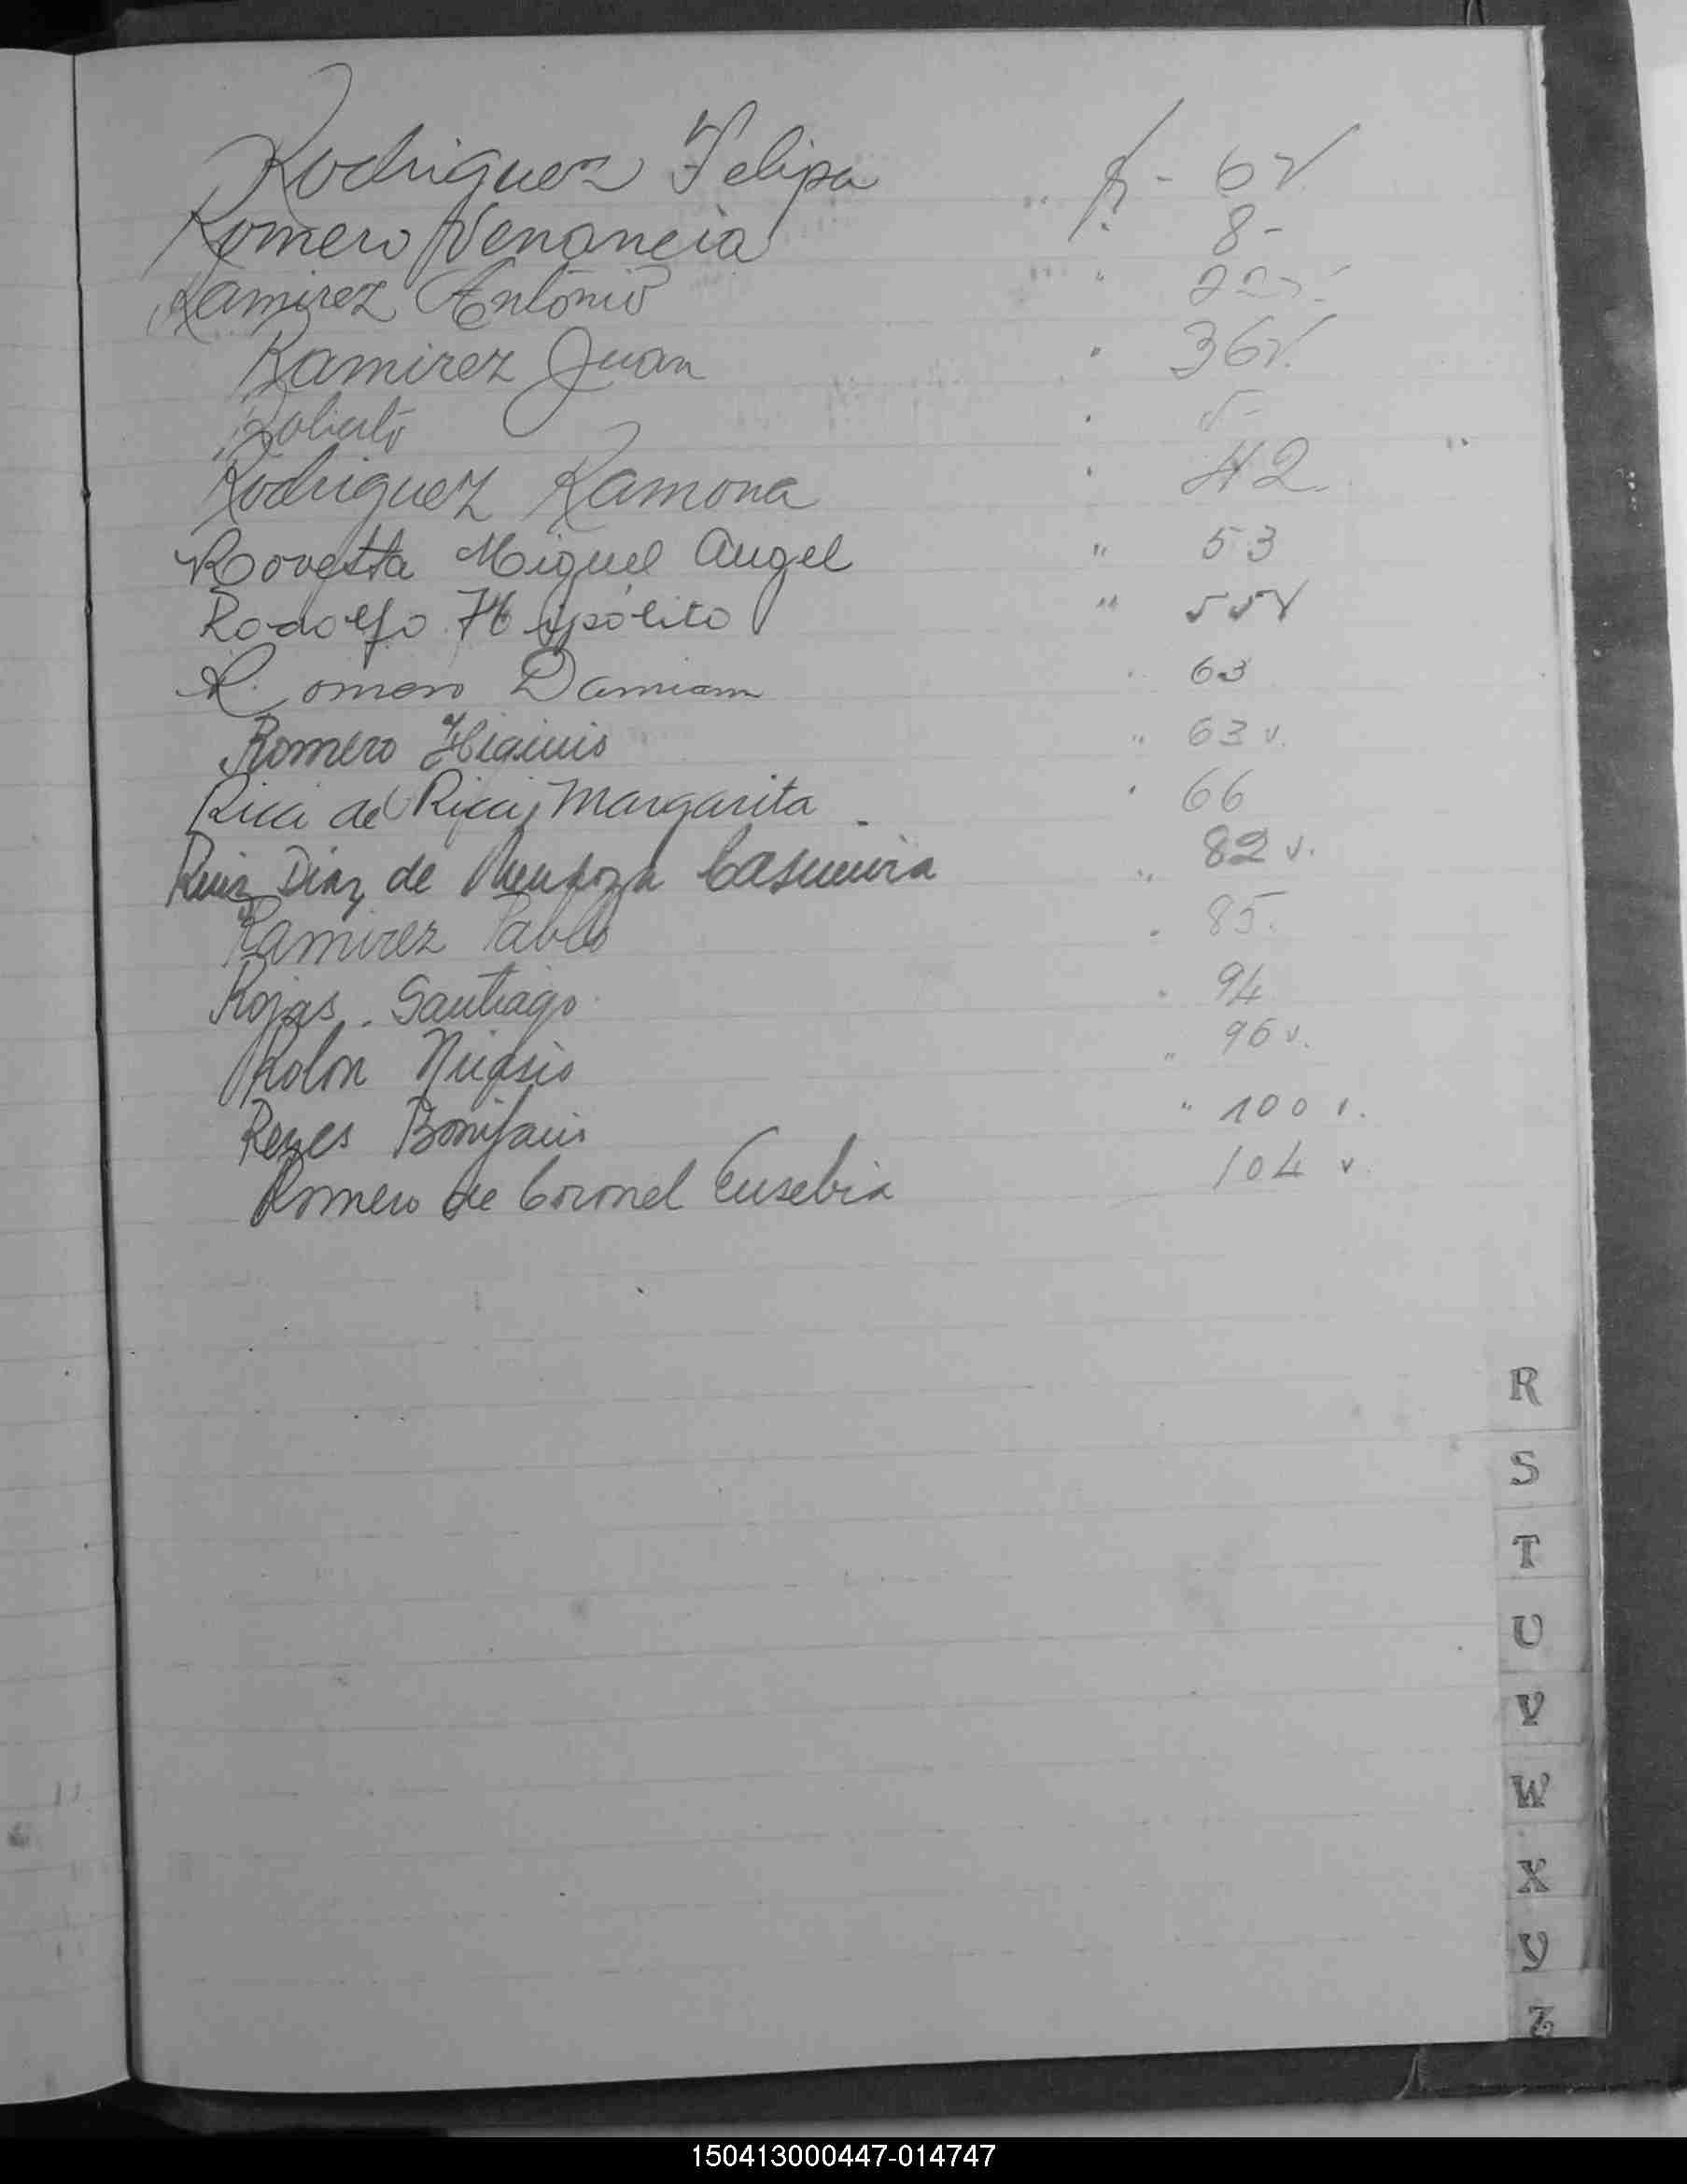 Rodriguez Felipa " f - 6 v
Romero Venancia " 8 -
Ramirez Antonio "
Ramirez Juan " 36 v.
Roberto " 5 -
Rodriguez Ramona " 42
Rovetta Miguel Angel " 53
Rodolfo Hipólito " 55 v
Romero Damian " 63
Romero Higinio " 63 v.
Ricci de Ricci Margarita " 66
Ruiz Diaz de Mendoza Casimira " 82 v.
Ramirez Pablo " 85.
Rojas Santiago " 94
Rolon Nicasio " 96 v.
Reyes Bonifacio " 100 v.
Romero de Coronel Eusebia 104 v.
R
S
T
U
V
W
X
Y
Z
150413000447-014747